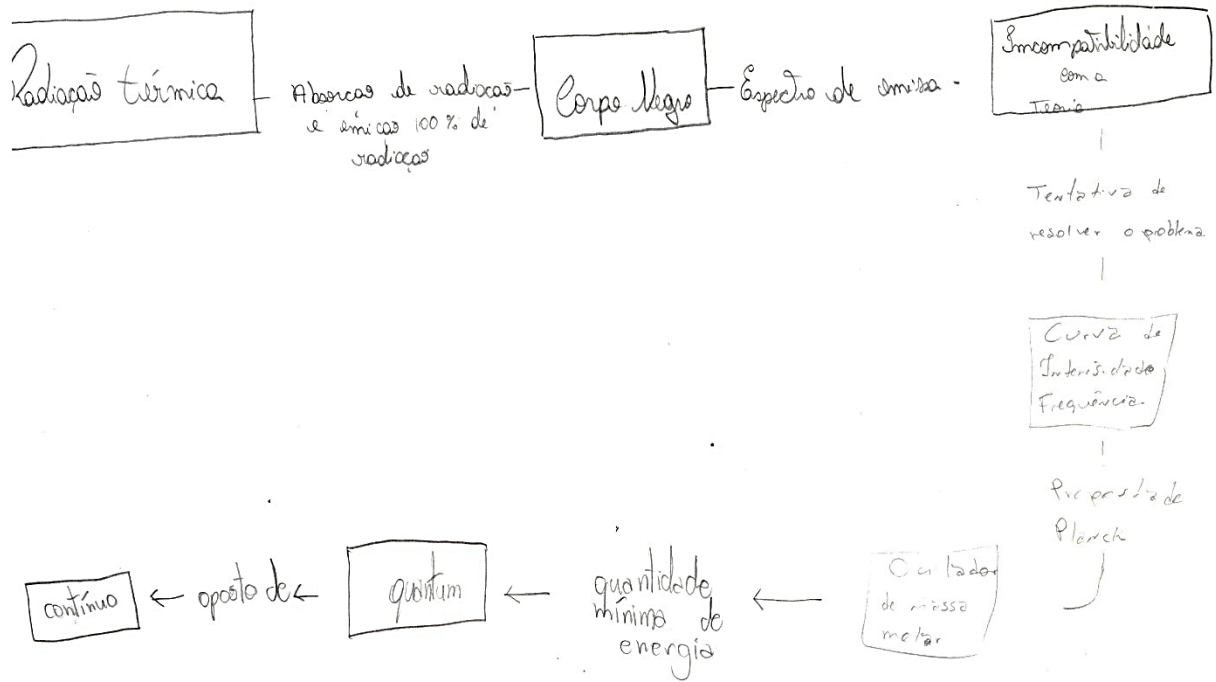 Radiação térmica
Absorcas de radiacao
e emicao 100% de
radiaças
Corpo Negro
Espectro de emissa
Imcompatibilidade
com a
Teoria
Tentativa de
resolver o problema
Curva de
Intensidade
Frequência
Planck
de massa
molar
quantidade
mínima de
energia
quantum
oposto de
contínuo